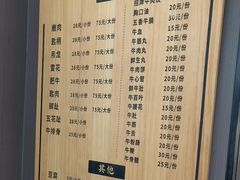 嫩肉 28元/小份 75元/大份
匙柄 28元/小份 75元/大份
吊龙 28元/小份 75元/大份
雪花 28元/小份 75元/大份
肥牛 28元/小份 75元/大份
匙肉 28元/小份 75元/大份
脚趾 28元/小份 75元/大份
五花趾 28元/小份
牛排骨 25元/小份
胸口油 20元/份
五香牛腩 30元/份
牛血 15元/份
牛筋丸 20元/份
牛肉丸 20元/份
鲜生丸 20元/份
牛肉饼 20元/份
牛心管 20元/份
鲜牛肚 20元/份
牛百叶 20元/份
牛腰花 15元/份
牛肚 20元/份
牛筋 20元/份
牛舌 20元/份
牛鞭 30元/份
牛骨髓 25元/份
其他
豆腐